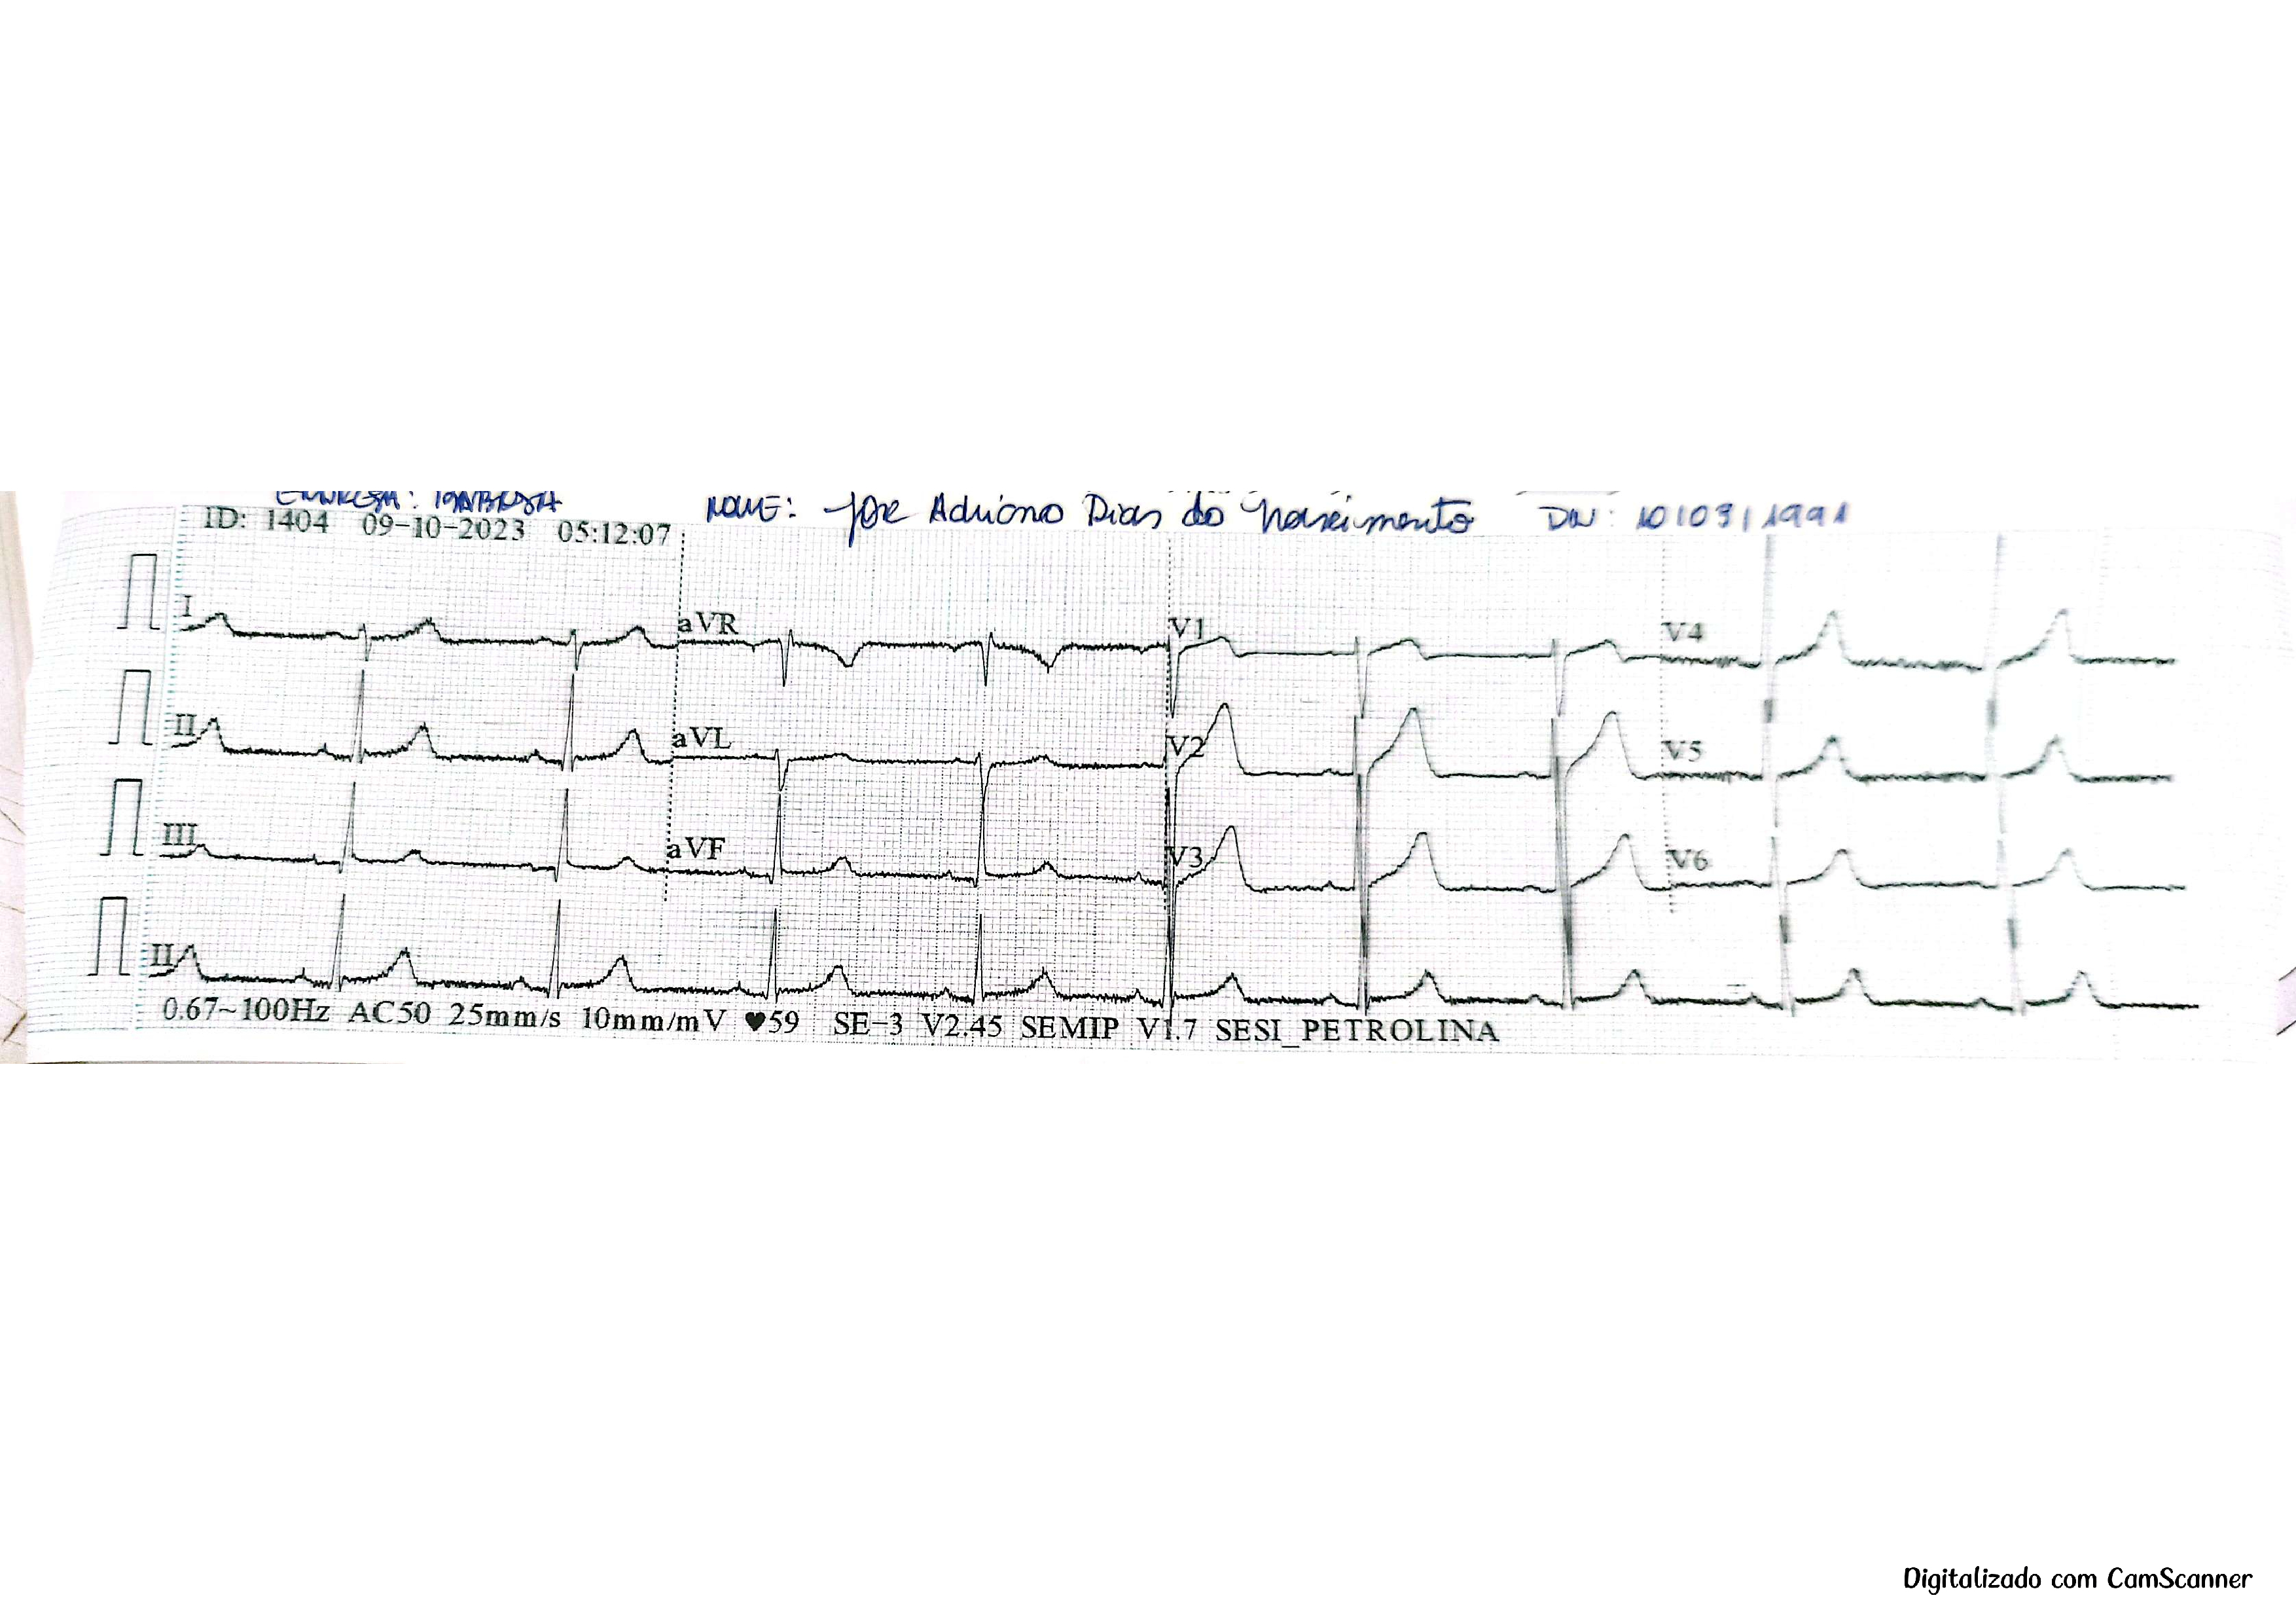 NOME: Jose Adriano Dias do Nascimento DN: 10/03/1991
ID: 1404 09-10-2023 05:12:07
I aVR V1 V4
II aVL V2 V5
III aVF V3 V6
II
0.67~100Hz AC50 25mm/s 10mm/mV ♥59 SE-3 V2.45 SEMIP V1.7 SESI_PETROLINA
Digitalizado com CamScanner